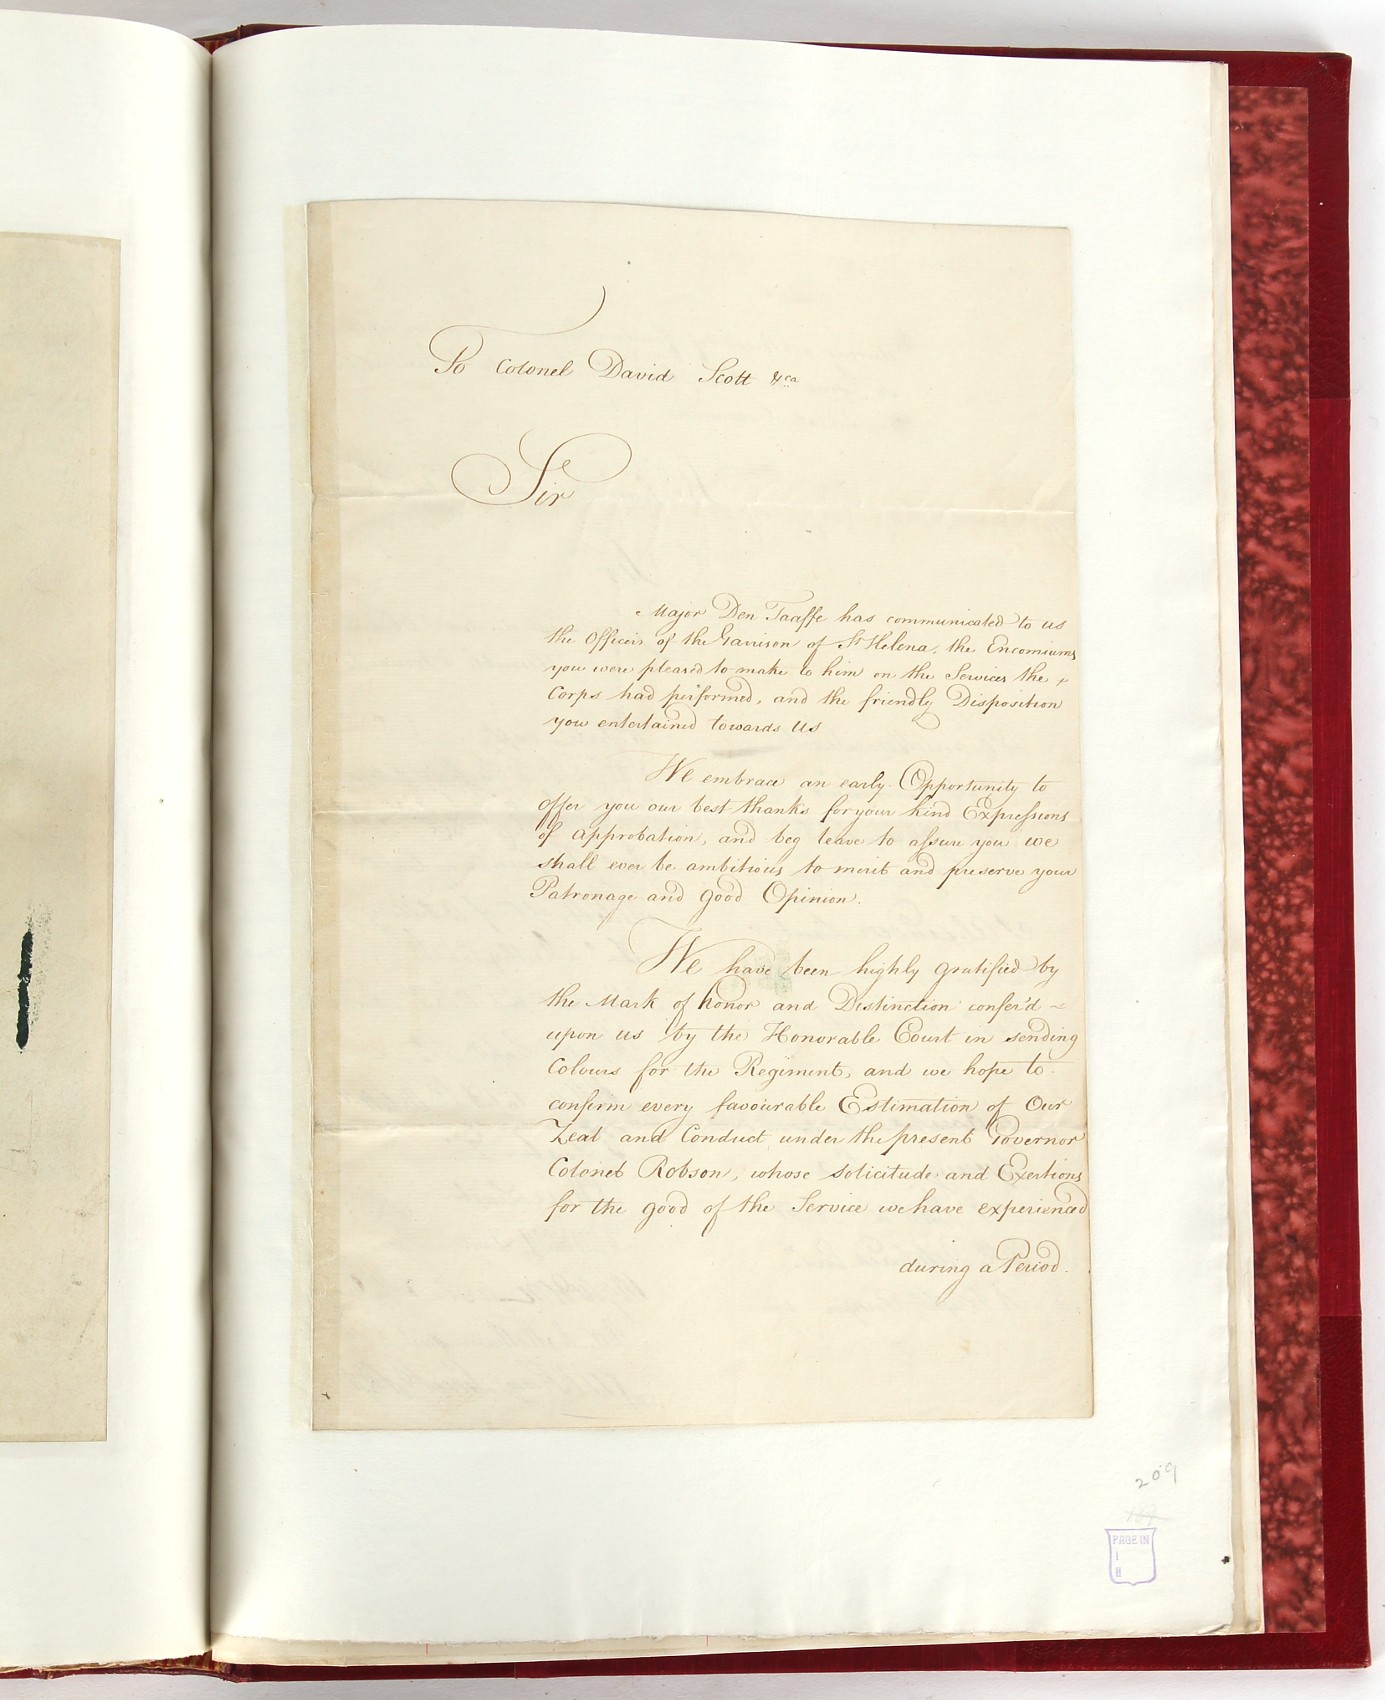 To Colonel David Scott &ca
Sir
Major Den Taaffe has communicated to us
the Officers of the Garrison of St Helena, the Encomiums
you were pleased to make to him on the Services the
Corps had performed, and the friendly Disposition
you entertained towards us
We embrace an early Opportunity to
offer you our best thanks for your kind Expressions
of approbation, and beg leave to assure you we
shall ever be ambitious to merit and preserve your
Patronage and good Opinion.
We have been highly gratified by
the Mark of honor and Distinction confer'd
upon us by the Honorable Court in sending
Colours for the Regiment, and we hope to
confirm every favourable Estimation of Our
Zeal and Conduct under the present Governor
Colonel Robson, whose solicitude and Exertions
for the good of the Service we have experienced
during a Period.
209
PAGE IN
I
H